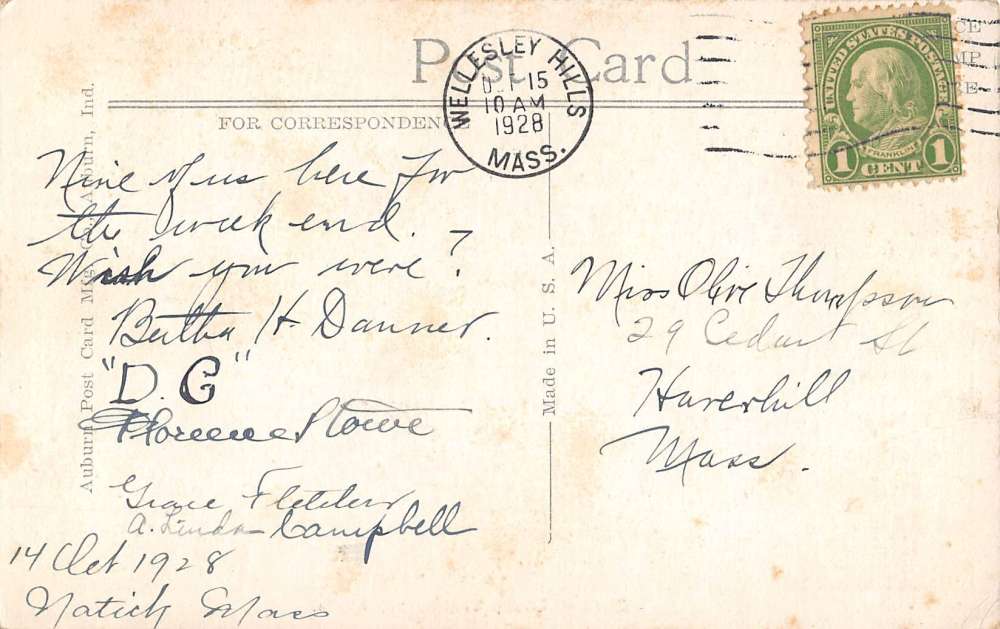 Post Card
WELLESLEY HILLS
15
10 AM
1928
MASS.
UNITED STATES POSTAGE
FRANKLIN
1 CENT 1
FOR CORRESPONDENCE
Nine of us here for
the week end.
Wish you were?
Bertha H. Danner.
"D. G"
Florence Stowe
Grace Fletcher
A. Linda Campbell
14 Oct 1928
Natick Mass
Auburn Post Card Mfg. Co., Auburn, Ind.
Made in U. S. A.
Miss Olive Thompson
29 Cedar St
Haverhill
Mass.